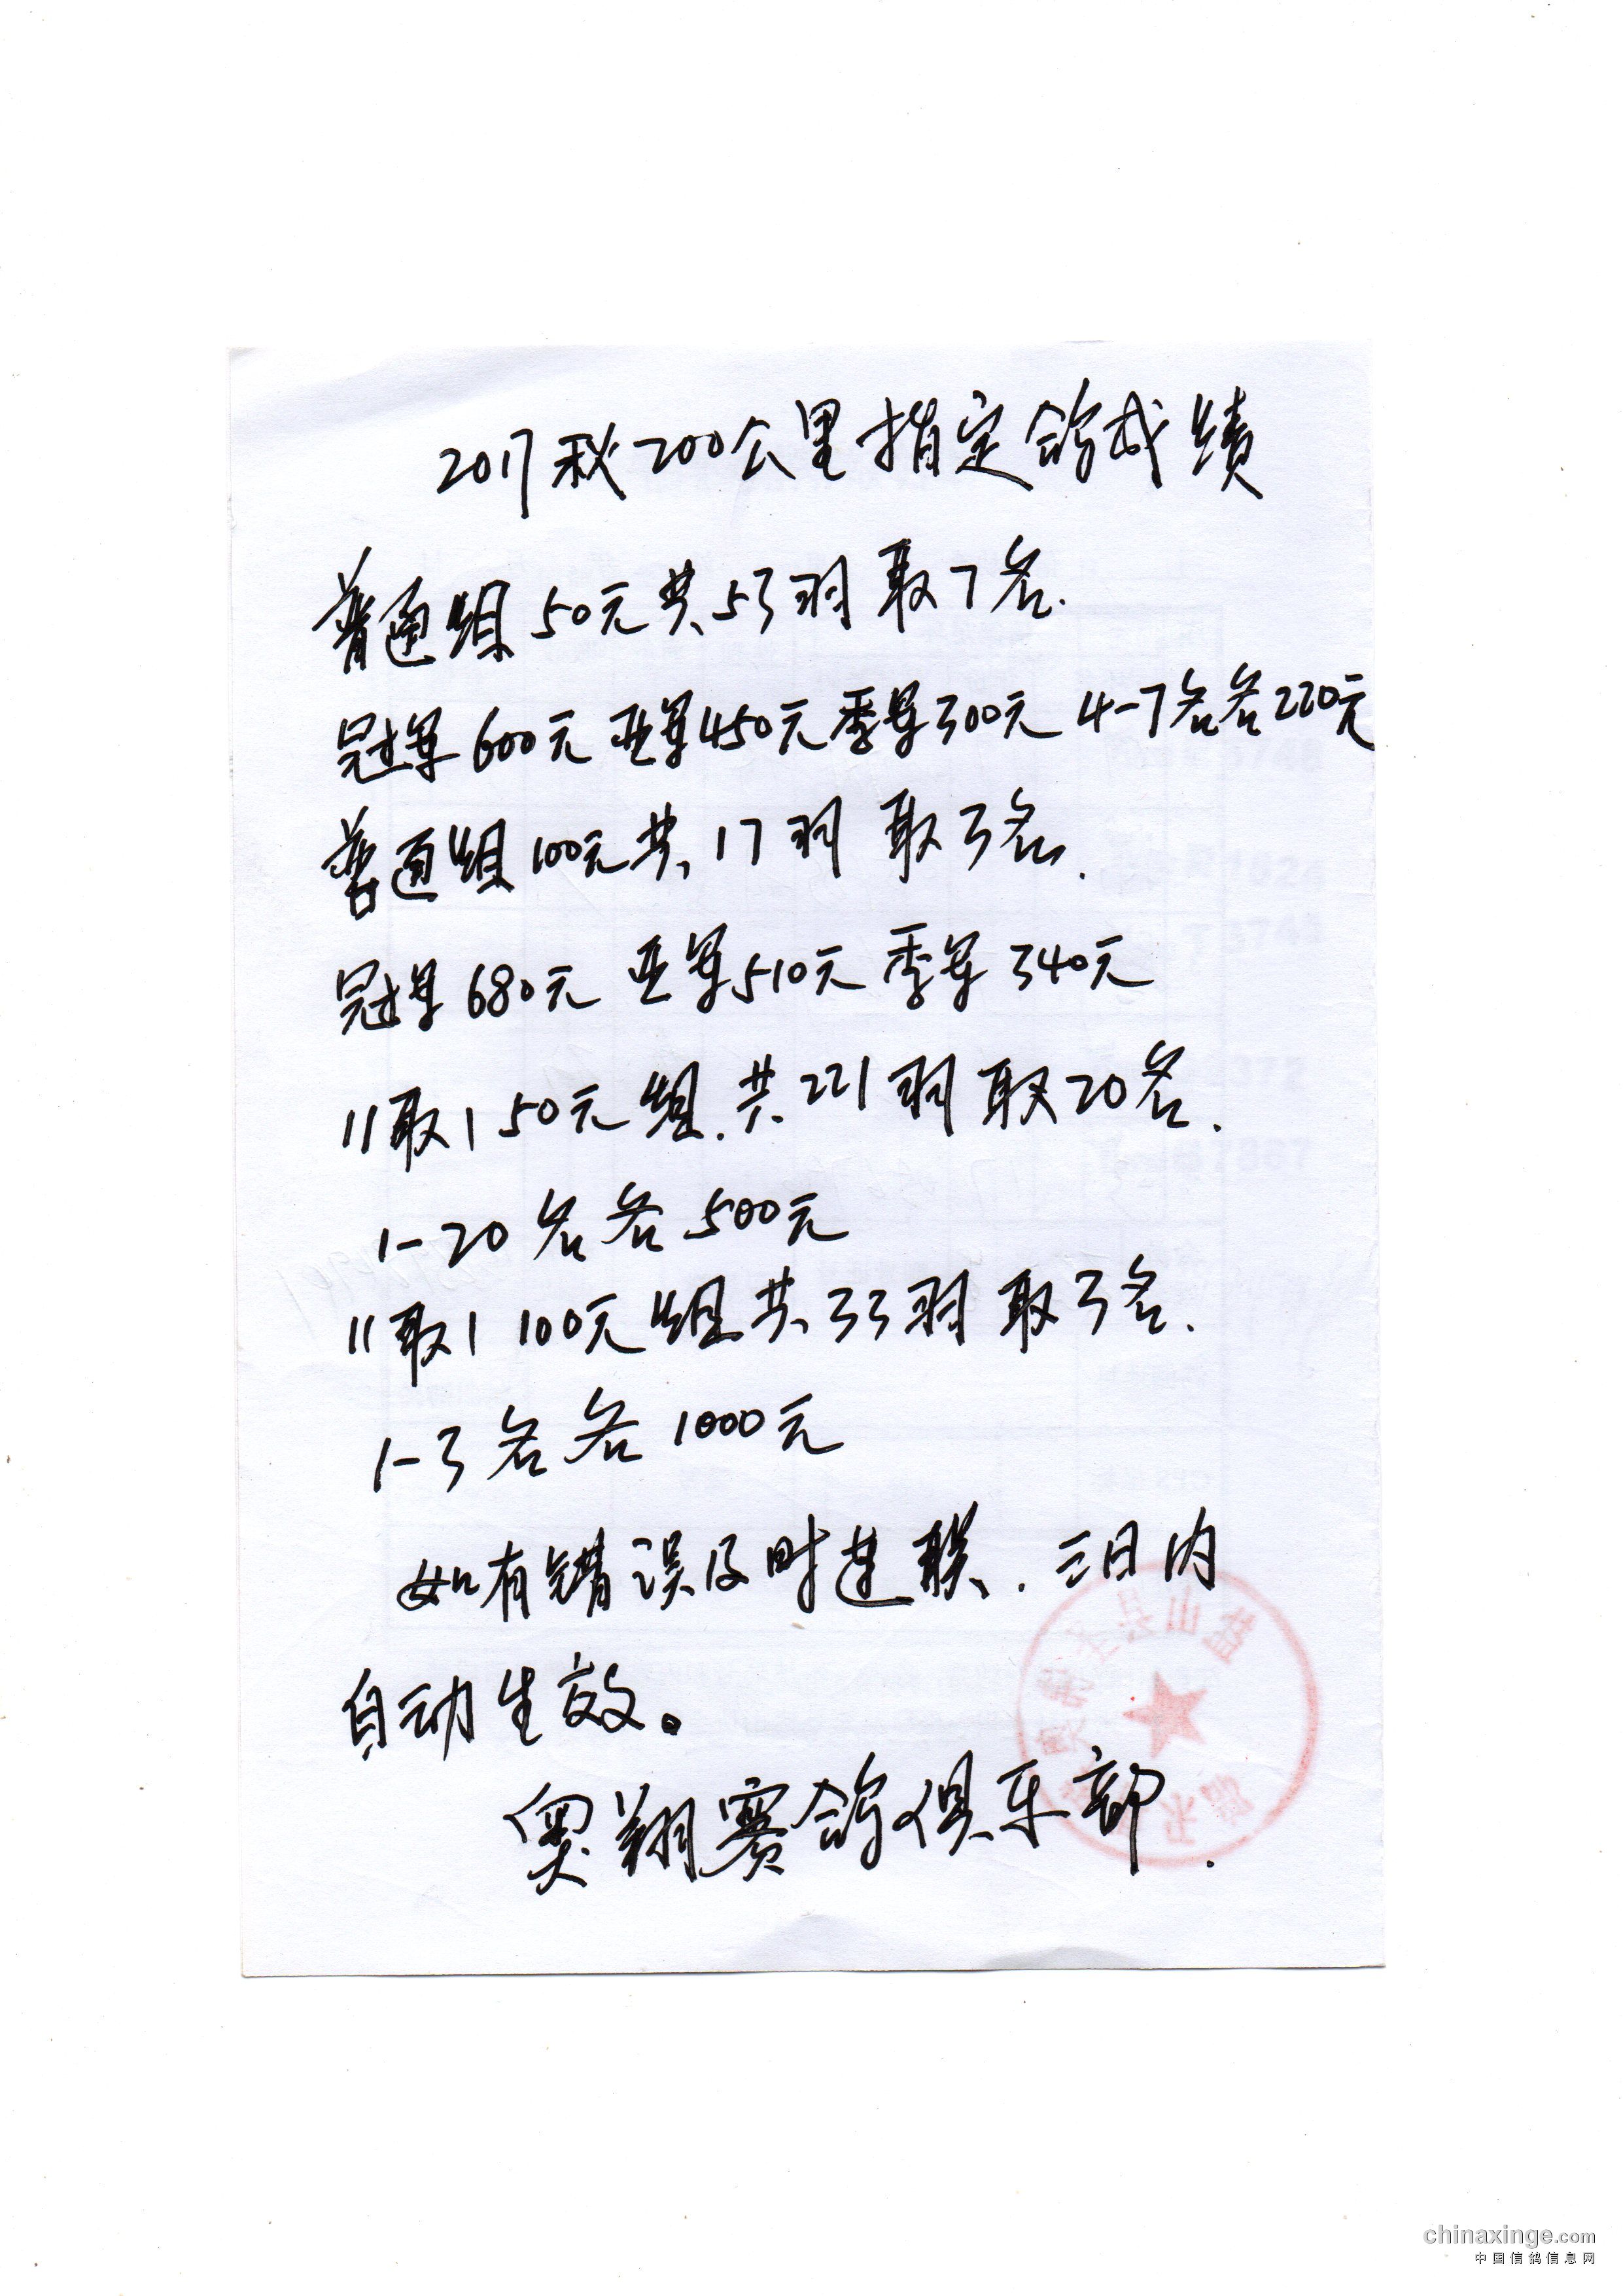 2017秋200公里指定鸽成绩
普通组50元共53羽取7名.
冠军600元 亚军450元季军300元 4-7名各220元
普通组100元共17羽 取3名.
冠军680元 亚军510元 季军340元
11取1 50元组.共221羽取20名.
1-20名各500元
11取1 100元组共33羽取3名.
1-3名各1000元
如有错误及时连联.三日内
自动生效。
奥翔赛鸽俱乐部.
chinaxinge.com
中国信鸽信息网